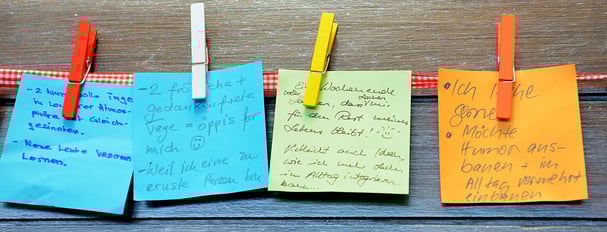 - 2 humorvolle Tage
in lockerer Atmos-
phäre mit Gleich-
gesinnten.
- Neue Leute kennen
lernen.
- 2 fröhliche +
gedankenfreie
Tage = öppis für
mich ☺
- Weil ich eine zu
ernste Person bin
Ein Wochenende
oder Lachen
Lernen, das mir
für den Rest meines
Lebens bleibt! ☺
Vielleicht auch Ideen,
wie ich mehr Lachen
im Alltag integrieren
kann...
• Ich lache
gerne
• Möchte
Humor aus-
bauen + im
Alltag vermehrt
einbauen